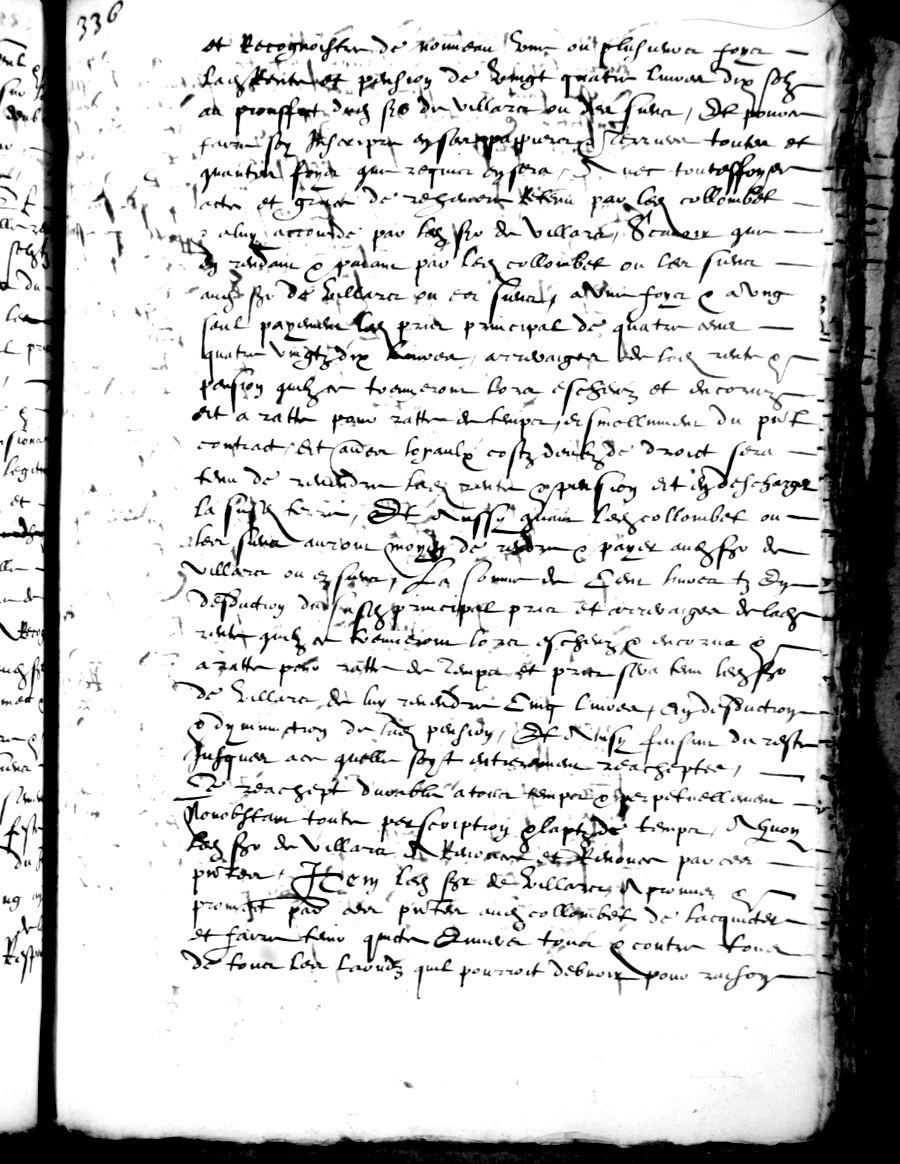 336
et Recognoistre de nouveau Une ou plusieurs foys
lad Rente et pension de Vingt quatre livres dix solz
au prouffict dud Sr de Villars ou des siens, Et pouvoir
faire soy Inscripre en ses pappiers terriers toutes et
quantes foys que requis en sera, Avec touteffoys
acte et grace de rehemere Retenu par led collombet
& a luy accordé par led Sr de Villars, Scavoir que
En rendant & paiant par led collombet ou les siens
aud Sr de Villars ou es siens, a Une foys & a Ung
seul payement led pris principal de quatre cens
quatre vingtz dix livres, arreraiges de lad rente &
pension quilz se trouveront lors escheuz et encoruz
Et a ratte pour ratte de temps, du prnt
contract, Et aussi loyaulx costz de droict sera
tenu de revendre lad rente & pension et En descharger
la susd terre, Et Aussy quant led collombet ou
les siens auront moyen de rendre & payer aud Sr de
Villars ou es siens, La somme de Cent livres tz En
desduction du susd principal pris et arreraiges de lad
rente quilz se trouveront lors escheuz & encoruz &
a ratte pour ratte de temps et pris sera tenu led Sr
de Villars de luy revendre Cinq livres, En desduction
& dyminuction de lad pension, Et Ainsy faisant du reste
Jusques a ce quelle soyt entierement reachaptee,
Et reachept durable a tous temps & perpetuellement
Nonobstant toute perscription & lapz de temps, A quoy
led Sr de Villars A Renoncé et Renonce par ces
pntes, Item led Sr de Villars A promis &
promect par ces pntes aud collombet de lacquicter
et faire tenir quicte Envers tous & contre tous
de tous les laoudz quil pourroit debvoir pour raison